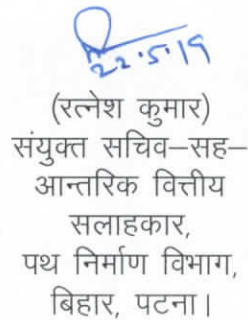 22.5.19
(रत्नेश कुमार)
संयुक्त सचिव–सह–
आन्तरिक वित्तीय
सलाहकार,
पथ निर्माण विभाग,
बिहार, पटना।